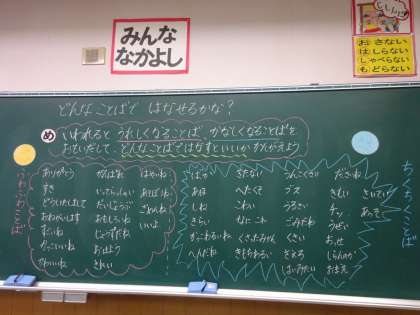 みんな
なかよし
おさない
はしらない
しゃべらない
もどらない
どんなことばで はなせるかな?
め
いわれると うれしくなることば、かなしくなることばを
おもいだして、どんなことばではなすといいか かんがえよう
ふわふわことば
ありがとう
すき
どういたしまして
おねがいします
すごいね
かっこいいね
かわいいね
がんばれ
いってらっしゃい
だいじょうぶ
おもしろいね
じょうずだね
おはよう
きれい
はやいね
あそぼうね
ごめんね
いいよ
ちくちくことば
ばか
あほ
しね
きらい
かっこわるいね
へんだね
きたない
へたくそ
こわい
なにこれ
くさったみかん
きもちわるい
うんこくさい
ブス
うるさい
ごみだね
くさい
きえろ
ださいね
きもい
チッ
うざい